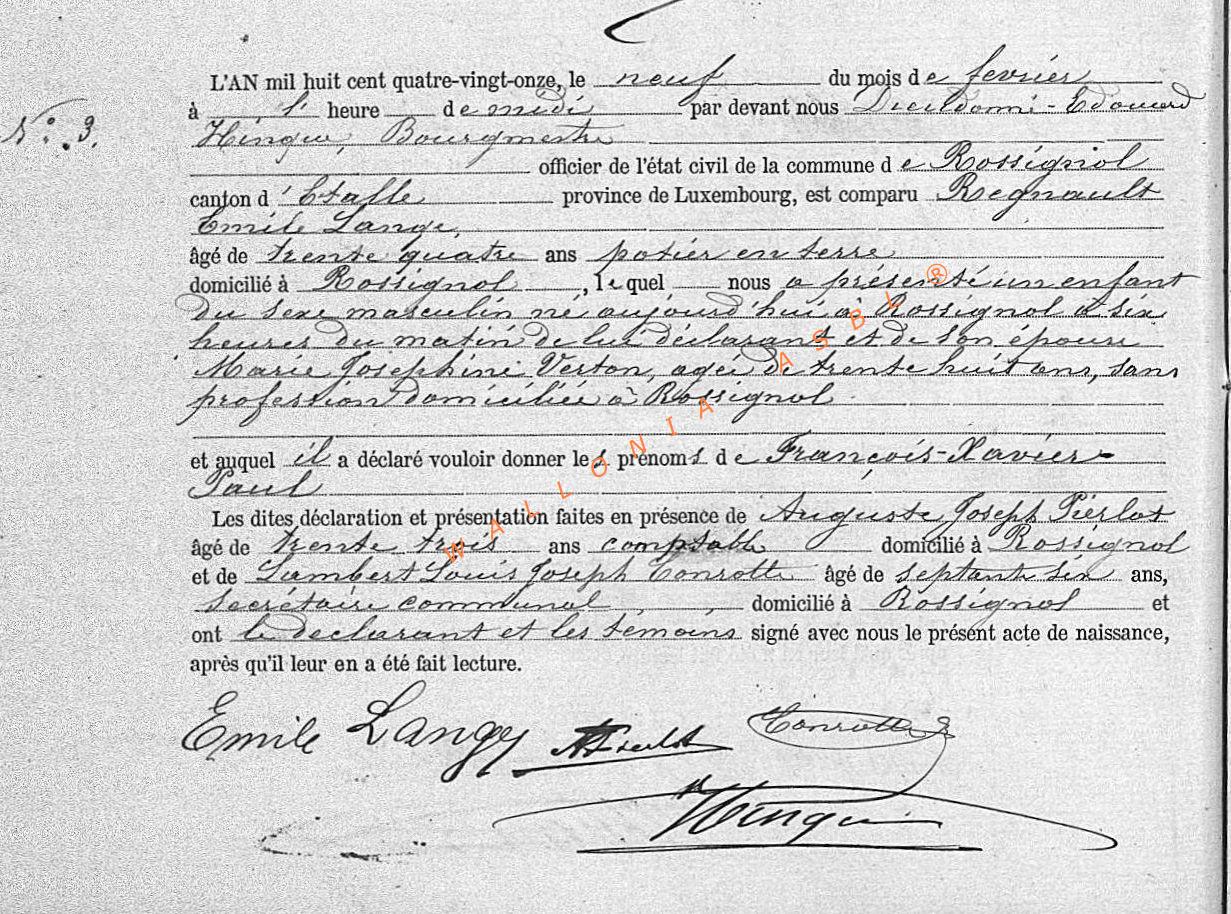 L'AN mil huit cent quatre-vingt-onze, le neuf du mois de fevrier
N° 3.
à 1 heure de midi par devant nous Dieudonné-Edouard
Hinque, Bourgmestre
officier de l'état civil de la commune de Rossignol
canton d'Etalle province de Luxembourg, est comparu Regnault
Emile Lange,
âgé de trente quatre ans potier en terre
domicilié à Rossignol, lequel nous a présenté un enfant
du sexe masculin né aujourd'hui à Rossignol à six
heures du matin de lui déclarant et de son épouse
Marie Josephine Verton, agée de trente huit ans, sans
profession domiciliée à Rossignol
et auquel il a déclaré vouloir donner les prénoms de François-Xavier-
Paul
Les dites déclaration et présentation faites en présence de Auguste Joseph Pierlot
âgé de trente trois ans comptable domicilié à Rossignol
et de Lambert Louis Joseph Conrotte âgé de septante six ans,
secrétaire communal, domicilié à Rossignol et
ont le declarant et les temoins signé avec nous le présent acte de naissance,
après qu'il leur en a été fait lecture.
Emile Lange APierlot Conrotte
Hinque
WALLONIA ASBL ®